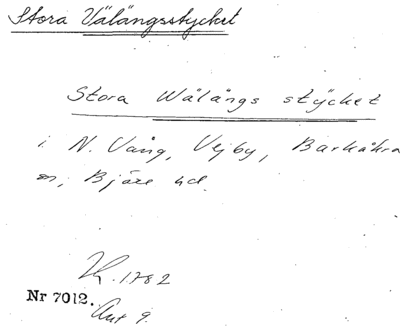 Stora Välångsstycket
Stora Wälångs stycket
i N. Vång, Vejby, Barkåkra
sn, Bjäre hd.
1782
Nr 7012.
Akt 9.